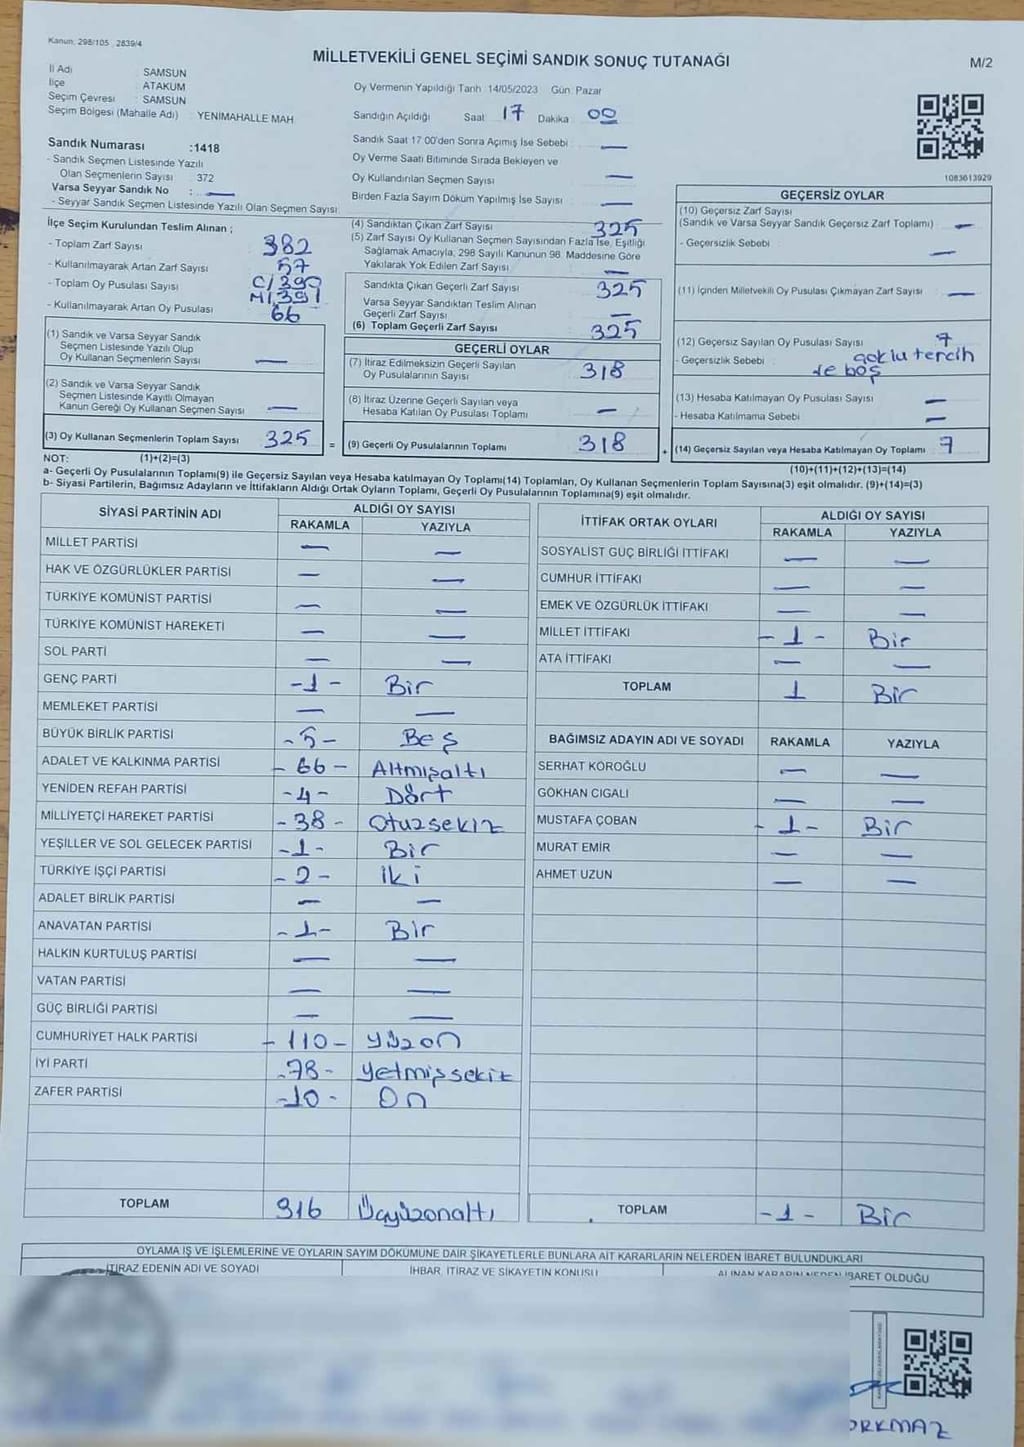 Kanun: 298/105 , 2839/4
MİLLETVEKİLİ GENEL SEÇİMİ SANDIK SONUÇ TUTANAĞI
M/2
İl Adı SAMSUN
İlçe ATAKUM
Seçim Çevresi : SAMSUN
Seçim Bölgesi (Mahalle Adı) : YENİMAHALLE MAH
Oy Vermenin Yapıldığı Tarih 14/05/2023 Gün: Pazar
Sandığın Açıldığı Saat 17 Dakika 00
Sandık Numarası :1418
- Sandık Seçmen Listesinde Yazılı
Olan Seçmenlerin Sayısı 372
Varsa Seyyar Sandık No : —
- Seyyar Sandık Seçmen Listesinde Yazılı Olan Seçmen Sayısı:
Sandık Saat 17:00'den Sonra Açımış İse Sebebi —
Oy Verme Saati Bitiminde Sırada Bekleyen ve
Oy Kullandırılan Seçmen Sayısı —
Birden Fazla Sayım Döküm Yapılmış İse Sayısı —
1083613929
İlçe Seçim Kurulundan Teslim Alınan ;
- Toplam Zarf Sayısı 382
- Kullanılmayarak Artan Zarf Sayısı 57
- Toplam Oy Pusulası Sayısı C/390
M/391
- Kullanılmayarak Artan Oy Pusulası 66
(1) Sandık ve Varsa Seyyar Sandık
Seçmen Listesinde Yazılı Olup
Oy Kullanan Seçmenlerin Sayısı —
(2) Sandık ve Varsa Seyyar Sandık
Seçmen Listesinde Kayıtlı Olmayan
Kanun Gereği Oy Kullanan Seçmen Sayısı —
(3) Oy Kullanan Seçmenlerin Toplam Sayısı 325 =
(4) Sandıktan Çıkan Zarf Sayısı 325
(5) Zarf Sayısı Oy Kullanan Seçmen Sayısından Fazla İse, Eşitliği
Sağlamak Amacıyla, 298 Sayılı Kanunun 98. Maddesine Göre
Yakılarak Yok Edilen Zarf Sayısı —
Sandıkta Çıkan Geçerli Zarf Sayısı 325
Varsa Seyyar Sandıktan Teslim Alınan
Geçerli Zarf Sayısı —
(6) Toplam Geçerli Zarf Sayısı 325
GEÇERLİ OYLAR
(7) İtiraz Edilmeksizin Geçerli Sayılan
Oy Pusulalarının Sayısı 318
(8) İtiraz Üzerine Geçerli Sayılan veya
Hesaba Katılan Oy Pusulası Toplamı —
(9) Geçerli Oy Pusulalarının Toplamı 318 +
GEÇERSİZ OYLAR
(10) Geçersiz Zarf Sayısı
(Sandık ve Varsa Seyyar Sandık Geçersiz Zarf Toplamı) —
- Geçersizlik Sebebi —
(11) İçinden Milletvekili Oy Pusulası Çıkmayan Zarf Sayısı —
(12) Geçersiz Sayılan Oy Pusulası Sayısı 7
- Geçersizlik Sebebi : çoklu tercih
ve boş
(13) Hesaba Katılmayan Oy Pusulası Sayısı —
- Hesaba Katılmama Sebebi —
(14) Geçersiz Sayılan veya Hesaba Katılmayan Oy Toplamı 7
NOT: (1)+(2)=(3) (10)+(11)+(12)+(13)=(14)
a- Geçerli Oy Pusulalarının Toplamı(9) ile Geçersiz Sayılan veya Hesaba katılmayan Oy Toplamı(14) Toplamları, Oy Kullanan Seçmenlerin Toplam Sayısına(3) eşit olmalıdır. (9)+(14)=(3)
b- Siyasi Partilerin, Bağımsız Adayların ve İttifakların Aldığı Ortak Oyların Toplamı, Geçerli Oy Pusulalarının Toplamına(9) eşit olmalıdır.
SİYASİ PARTİNİN ADI ALDIĞI OY SAYISI
RAKAMLA YAZIYLA
MİLLET PARTİSİ — —
HAK VE ÖZGÜRLÜKLER PARTİSİ — —
TÜRKİYE KOMÜNİST PARTİSİ — —
TÜRKİYE KOMÜNİST HAREKETİ — —
SOL PARTİ — —
GENÇ PARTİ -1- Bir
MEMLEKET PARTİSİ — —
BÜYÜK BİRLİK PARTİSİ -5- Beş
ADALET VE KALKINMA PARTİSİ -66- Altmışaltı
YENİDEN REFAH PARTİSİ -4- Dört
MİLLİYETÇİ HAREKET PARTİSİ -38- Otuzsekiz
YEŞİLLER VE SOL GELECEK PARTİSİ -1- Bir
TÜRKİYE İŞÇİ PARTİSİ -2- iki
ADALET BİRLİK PARTİSİ — —
ANAVATAN PARTİSİ -1- Bir
HALKIN KURTULUŞ PARTİSİ — —
VATAN PARTİSİ — —
GÜÇ BİRLİĞİ PARTİSİ — —
CUMHURİYET HALK PARTİSİ -110- yüzon
İYİ PARTİ -78- yetmişsekiz
ZAFER PARTİSİ -10- On
TOPLAM 316 Üçyüzonaltı
İTTİFAK ORTAK OYLARI ALDIĞI OY SAYISI
RAKAMLA YAZIYLA
SOSYALİST GÜÇ BİRLİĞİ İTTİFAKI — —
CUMHUR İTTİFAKI — —
EMEK VE ÖZGÜRLÜK İTTİFAKI — —
MİLLET İTTİFAKI -1- Bir
ATA İTTİFAKI — —
TOPLAM 1 Bir
BAĞIMSIZ ADAYIN ADI VE SOYADI RAKAMLA YAZIYLA
SERHAT KÖROĞLU — —
GÖKHAN CIGALI — —
MUSTAFA ÇOBAN -1- Bir
MURAT EMİR — —
AHMET UZUN — —
TOPLAM -1- Bir
OYLAMA İŞ VE İŞLEMLERİNE VE OYLARIN SAYIM DÖKÜMÜNE DAİR ŞİKAYETLERLE BUNLARA AİT KARARLARIN NELERDEN İBARET BULUNDUKLARI
İTİRAZ EDENİN ADI VE SOYADI İHBAR, İTİRAZ VE ŞİKAYETİN KONUSU ALINAN KARARIN NEDEN İBARET OLDUĞU
ORKMAZ